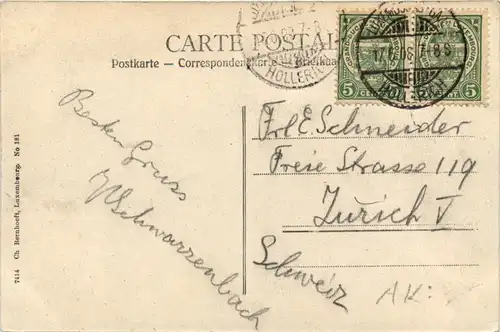 CARTE POSTALE
Postkarte – Correspondenzkarte – Briefkaart
HOLLERICH
LUXEMBOURG
5 5
HOLLERICH
Frl E. Schneider
Freie Strasse 119
Zürich V
Schweiz
AK:
Besten Gruss
Schwarzenbach
7414 Ch Bernhoeft, Luxembourg. No 181